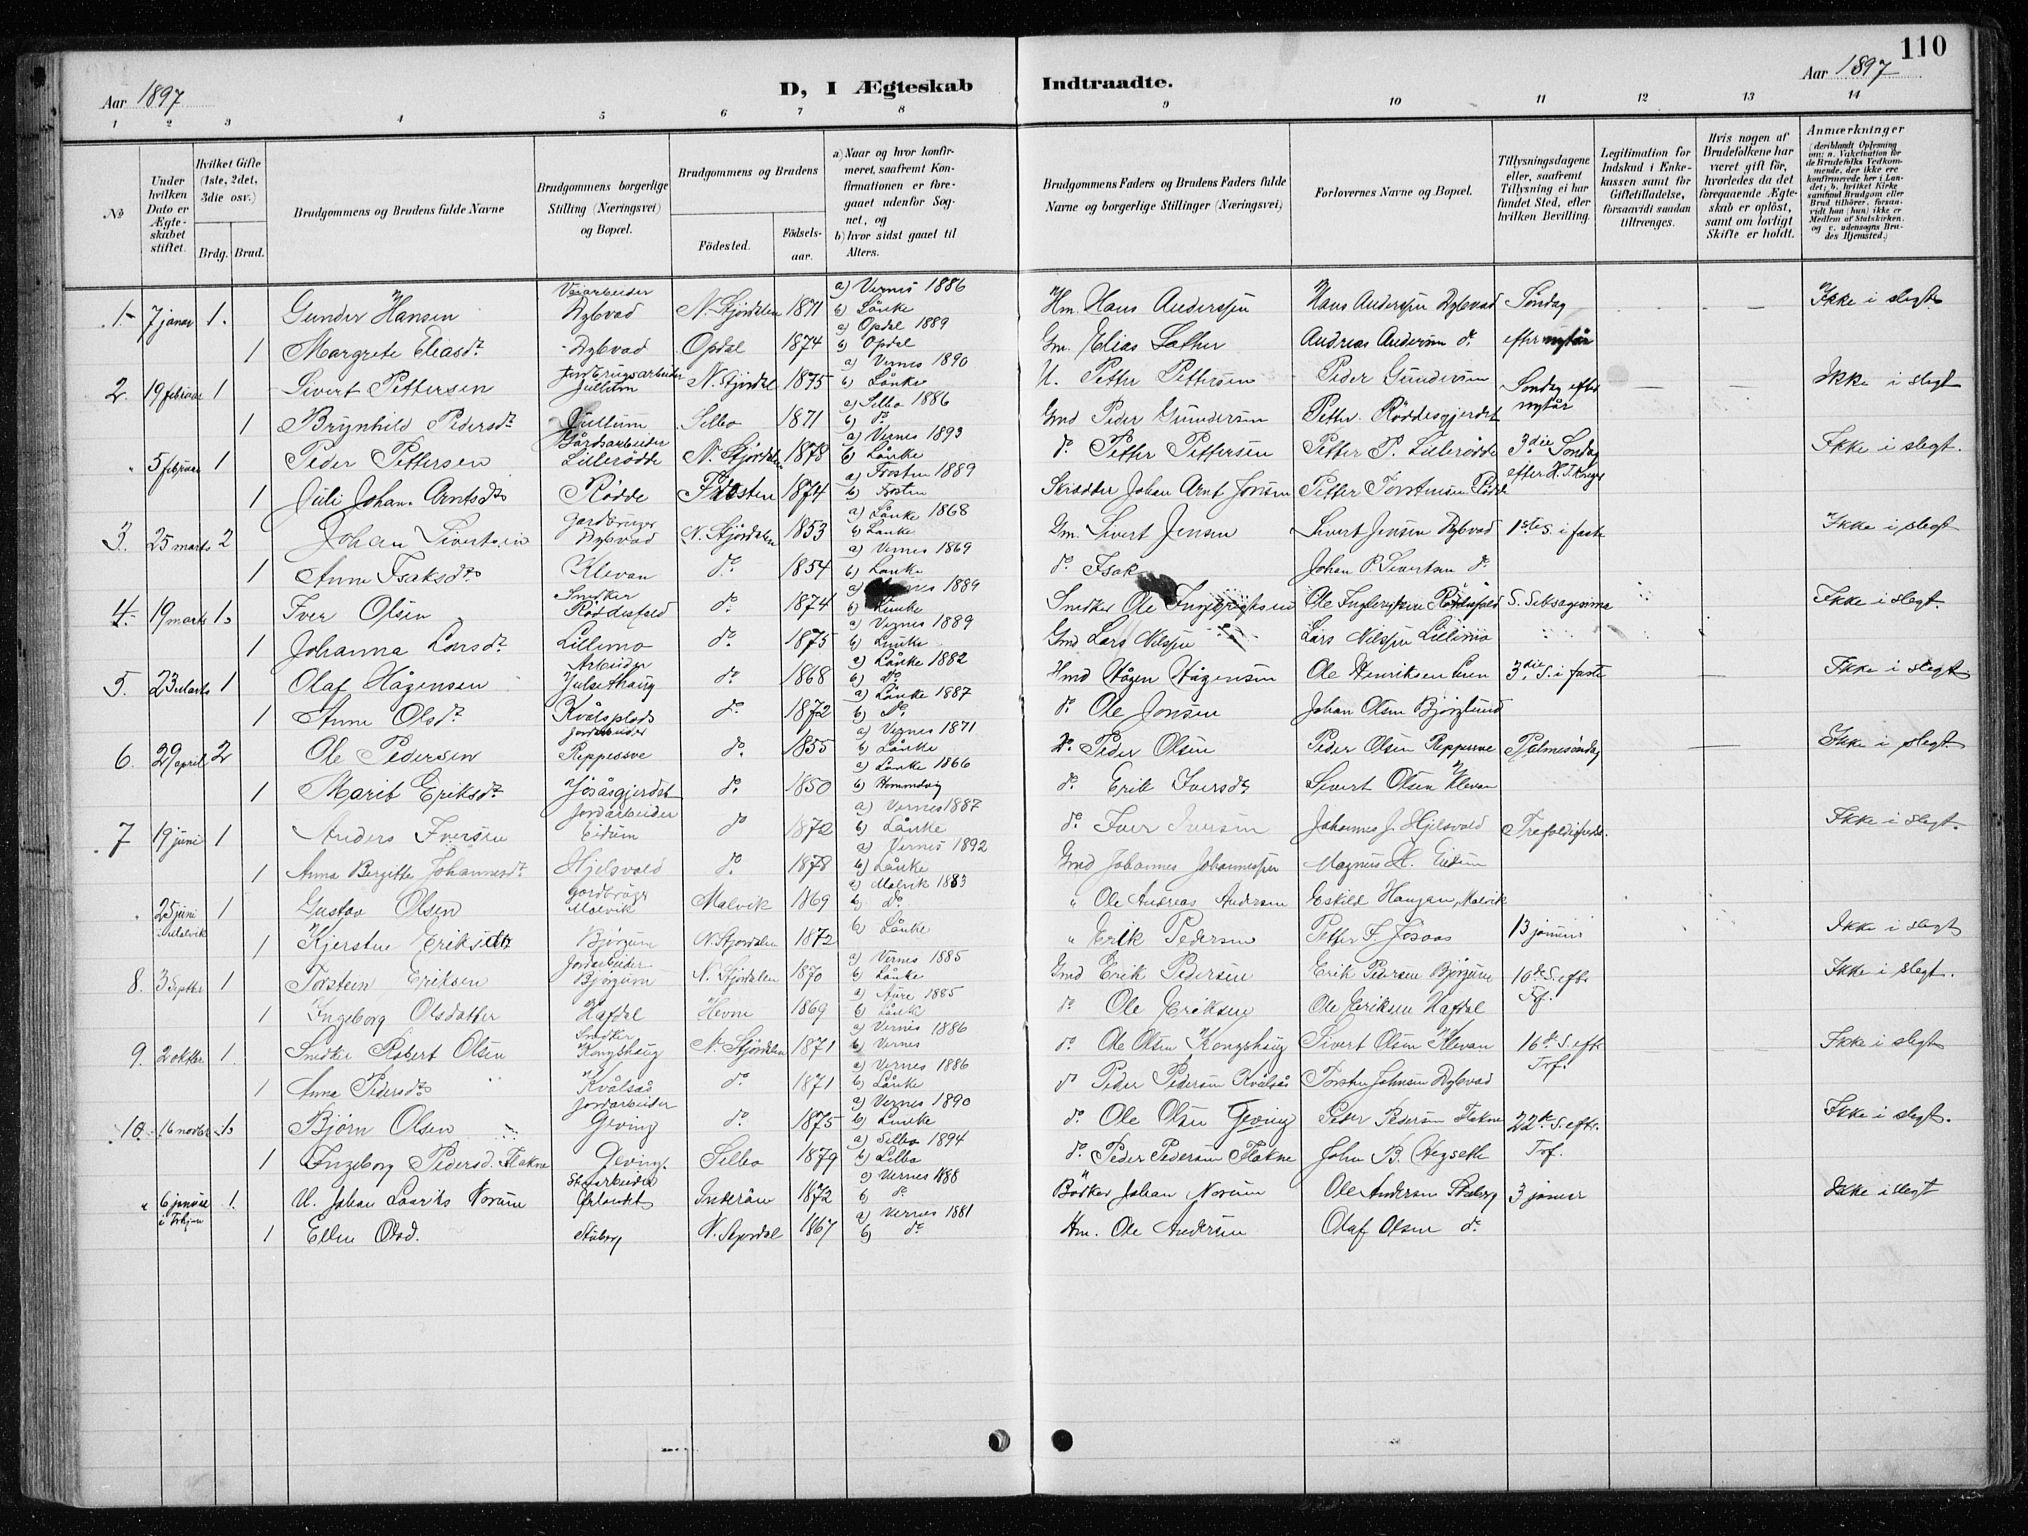 110
Aar 1897 D, I Ægteskab Indtraadte. Aar 1897
1 2 3 4 5 6 7 8 9 10 11 12 13 14
No
Under hvilken Dato er Ægteskabet stiftet.
Hvilket Gifte (1ste, 2det, 3die osv.)
Brdg. Brud.
Brudgommens og Brudens fulde Navne
Brudgommens borgerlige Stilling (Næringsvei) og Bopæl.
Brudgommens og Brudens
Fødested. Fødselsaar.
a) Naar og hvor konfirmeret, saafremt Konfirmationen er foregaaet udenfor Sognet, og
b) hvor sidst gaaet til Alters.
Brudgommens Faders og Brudens Faders fulde Navne og borgerlige Stillinger (Næringsvei)
Forlovernes Navne og Bopæl.
Tillysningsdagene eller, saafremt Tillysning ei har fundet Sted, efter hvilken Bevilling.
Legitimation for Indskud i Enkekassen samt for Giftetilladelse, forsaavidt saadan tiltrænges.
Hvis nogen af Brudefolkene har været gift før, hvorledes da det foregaaende Ægteskab er opløst, samt om lovligt Skifte er holdt.
Anmærkninger (deriblandt Oplysning om: a. Vakcination for de Brudefolks Vedkommende, der ikke ere konfirmerede her i Landet; b. hvilket Kirkesamfund Brudgom eller Brud tilhører, forsaavidt han (hun) ikke er Medlem af Statskirken, og c. udensogns Brudes Hjemsted.)
1. 7 januar 1. Gunder Hansen Veiarbeider Dybvad N. Stjørdalen 1871 a) Vernes 1886 b) Lånke Hm. Hans Anderssen Hans Anderssen Dybvad Søndag Ikke i slegt
1 Margrete Eliasdr Dybvad Opdal 1874 a) Opdal 1889 b) Opdal Gm. Elias Andreas Andersen do efter nytår
2. 19 februar 1 Sivert Pettersen Jordbrugsarbeider Jullum N. Stjørdal 1875 a) Vernes 1890 b) Lånke U. Petter Pettersen Peder Gundersen Søndag efter nytår Ikke i slegt
1 Brynhild Pedersdr Jullum Selbo 1871 a) Selbo 1886 b) do Gmd Peder Gundersen Petter Røddesgjerdet
" 5 februar 1 Peder Pettersen Gårdsarbeider Lillerødde N. Stjørdalen 1878 a) Vernes 1893 b) Lånke do Petter Pettersen Petter P. Lillerødde 3die Søndag Ikke i slegt.
1 Juli Johan. Arntsdr Rødde Frosten 1874 a) Frosten 1889 b) Frosten Skrædder Johan Arnt Jonsen Petter Torstensen Rødde efter H. 3. Konger
3. 25 marts 2 Johan Sivertsen Gardbruger Dybvad N. Stjørdalen 1853 a) Lånke 1868 b) Lånke Gm. Sivert Jensen Sivert Jensen Dybvad 1ste S. i faste Ikke i slegt
1 Anne Isaksdr Klevan do 1854 a) Vernes 1869 b) Lånke do Isak Johan P. Sivertsen do
4. 19 marts 1. Iver Olsen Snedker Røddesfald do 1874 a) Vernes 1889 b) Lånke Snedker Ole Ingebrigtsen Ole Ingebrigtsen Røddesfald S. Seksagesima Ikke i slegt.
1 Johanna Larsdr Lillemo do 1875 a) Vernes 1889 b) Lånke Gmd Lars Nilssen Lars Nilssen Lillemo
5. 23 marts 1 Olaf Hågensen Arbeider Julsethaug do 1868 a) Lånke 1882 b) do Hmd Hågen Hågensen Ole Henriksen 3die S. i faste Ikke i slegt
1 Anne Olsdr Kvålsplads do 1872 a) Lånke 1887 b) do do Ole Jonsen Johan Olsen Bjørglund
6. 29 april 2 Ole Pedersen Jordarbeider Reppesve do 1855 a) Vernes 1871 b) Lånke do Peder Olsen Peder Olsen Reppesve Palmesøndag Ikke i slegt
1 Marit Eriksdr Jøsåsgjerdet do 1850 a) Lånke 1866 b) Hommelvig do Erik Iversdr Sivert Olsen Klevan
7 19 juni 1 Anders Iversen Jordarbeider Eidum do 1872 a) Vernes 1887 b) Lånke do Iver Iversen Johannes J. Hjelsvold Trefoldigheds. Ikke i slegt.
1 Anna Bergitte Johannesdr Hjelsvold do 1878 a) Vernes 1892 b) Lånke Gmd Johannes Johannessen Magnus H. Eidum
" 25 juni i Malvik 1 Gustav Olsen Gardbruger Malvik Malvik 1869 a) Malvik 1883 b) do " Ole Andreas Andersen Eskild Haugan, Malvik
1 Kjerstine Eriksdtr Bjørgum N. Stjørdalen 1872 b) Lånke " Erik Pedersen Petter F. Jøsaas 13 januar Ikke i slegt
8. 3 Septbr 1 Torstein Eriksen Jordarbeider Bjørgum N. Stjørdalen 1870 a) Vernes 1885 b) Lånke Gmd Erik Pedersen Erik Pedersen Bjørgum 10de S. eftr Trf. Ikke i slegt.
1 Ingeborg Olsdatter Hafdal Hevne 1869 a) Aure 1885 b) Lånke do Ole Eriksen Ole Eriksen Hafdal
9. 2 oktbr 1. Snedker Robert Olsen Snedker Kongshaug N. Stjørdalen 1871 a) Vernes 1886 b) Vernes do Ole Olsen Kongshaug Sivert Olsen Klevan 16de S. eftr Trf. Ikke i slegt
1 Anna Pedersdr Kvålsås do 1871 a) Vernes 1886 b) Lånke do Peder Pedersen Kvålsås Torsten Johnsen Dybvad
10. 16 novbr 1. Bjørn Olsen Jordarbeider Geving do 1875 a) Vernes 1890 b) Lånke do Ole Olsen Geving Peder Pedersen Flakne 22de S. eftr. Trf. Ikke i slegt.
1 Ingeborg Pedersd. Flakne Geving. Selbo 1879 a) Selbo 1894 b) Selbo do Peder Pedersen Flakne John B. Hegseth
" 6 januar i Trhjem 1. U. Johan Laurits Norum Ørlandet Inderøen 1872 a) Vernes 1888 b) do Bødker Johan Norum Ole Andersen Stuberg 3 januar Ikke i slegt
1 Ellen Olsd. Stuberg N. Stjørdal 1867 a) Vernes 1881 b) do Hm. Ole Andersen Olaf Olsen do